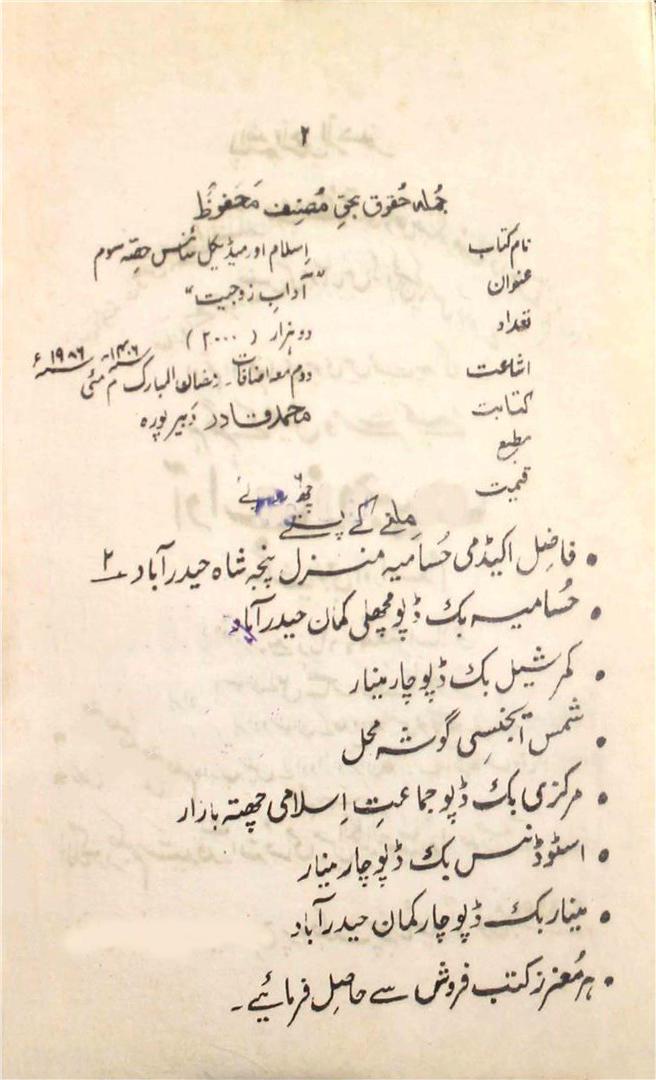 ۲
جُملہ حُقوق بحقِ مُصنِف مَحفوظ
نام کتاب اِسلام اور میڈیکل سائنس حصّہ سوم
عنوان "آدابِ زوجیت"
تعداد دو ہزار (۲۰۰۰)
اشاعت دوم معہ اضافات۔ رمضان المبارک ۱۴۰۶ھ م مئی ۱۹۸۶ء
کتابت محمد قادر دبیر پورہ
مطبع
قیمت چھ ۶ روپے
مِلنے کے پتے
• فاضِل اکیڈمی حُسامیہ منزل پنجہ شاہ حیدرآباد ۲
• حُسامیہ بک ڈپو مچھلی کمان حیدرآباد
• کمرشیل بک ڈپو چار مینار
• شمس ایجنسی گوشہ محل
• مرکزی بک ڈپو جماعتِ اِسلامی چھتہ بازار
• اسٹوڈنٹس بک ڈپو چار مینار
• مینار بک ڈپو چار کمان حیدرآباد
• ہر مُعزز کتب فروش سے حاصِل فرمائیے۔